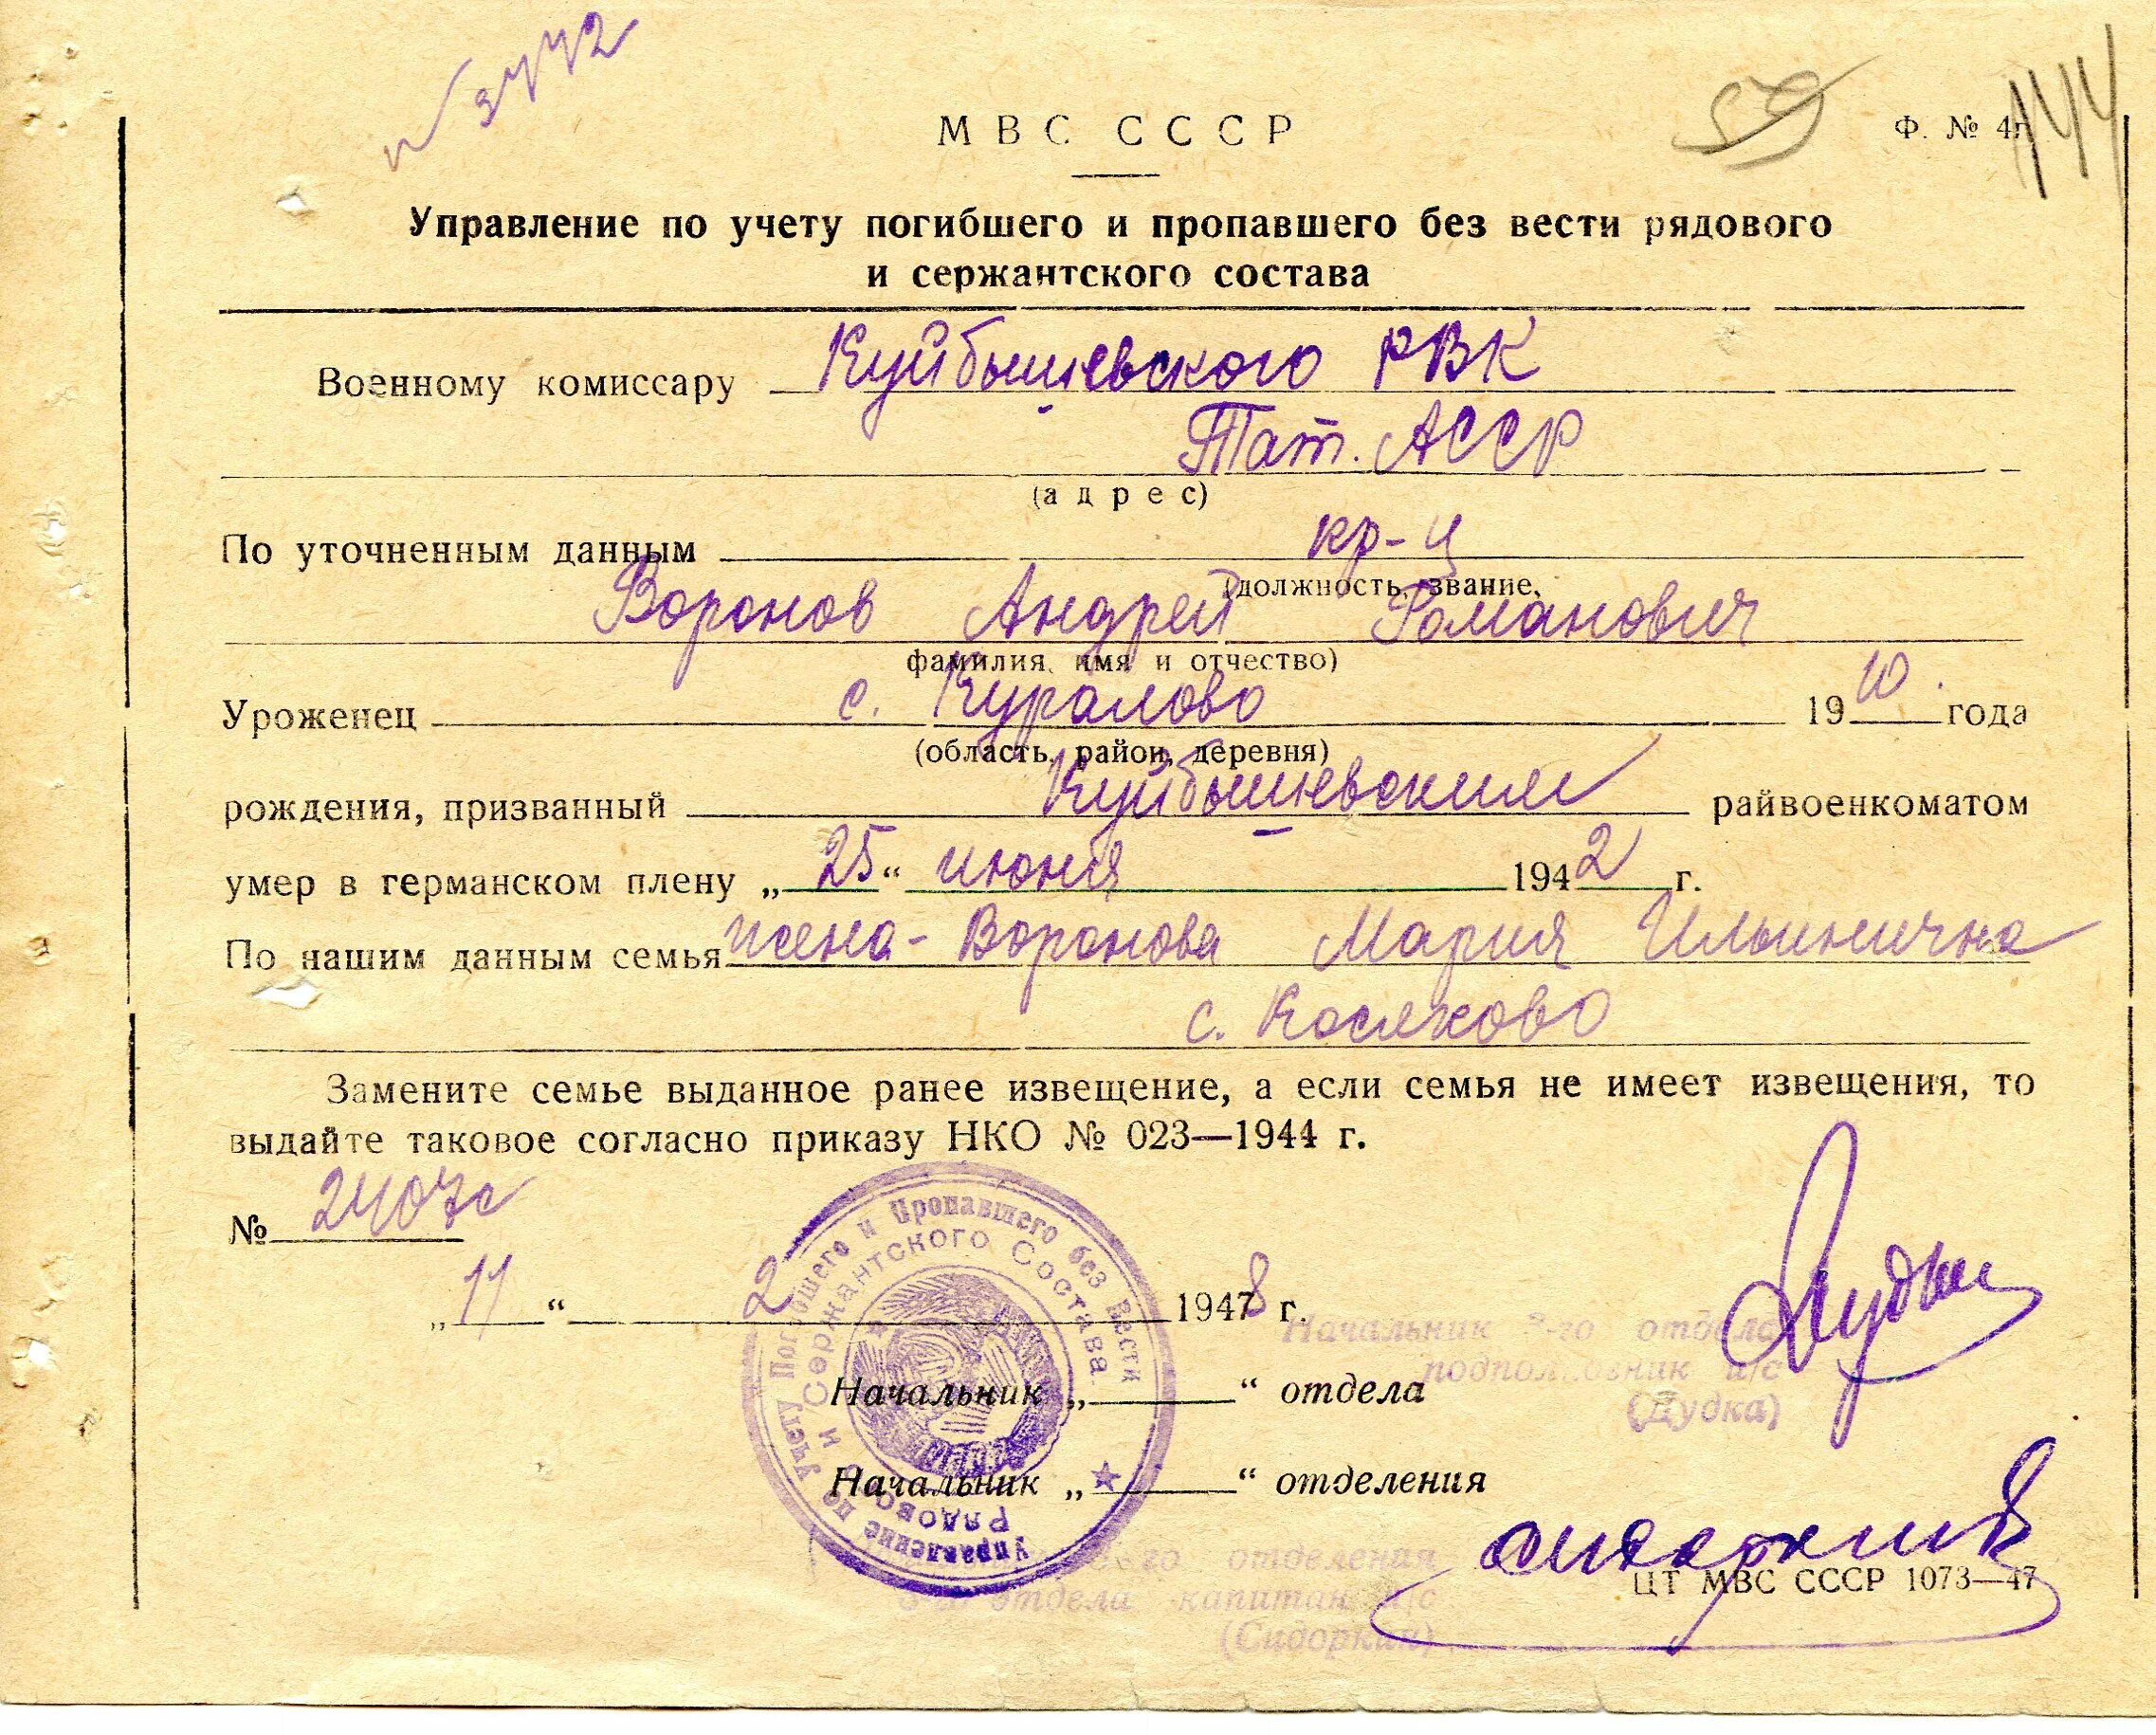 59
144
М В С С С С Р
Ф. № 4г
Управление по учету погибшего и пропавшего без вести рядового
и сержантского состава
Военному комиссару Куйбышевского РВК
Тат. АССР
(а д р е с)
По уточненным данным кр-ц
(должность, звание,
Воронов Андрей Романович
фамилия, имя и отчество)
Уроженец с. Куралово 1910. года
(область, район, деревня)
рождения, призванный Куйбышевским райвоенкоматом
умер в германском плену „25“ июня 1942 г.
По нашим данным семья жена - Воронова Мария Ильинична
с. Косяково
Замените семье выданное ранее извещение, а если семья не имеет извещения, то
выдайте таковое согласно приказу НКО № 023—1944 г.
№ 2407с
„11“ 2 1948 г.
Управление по Учету Погибшего и Пропавшего без Вести
Рядового и Сержантского Состава
Начальник -го отдела
подполковник и/с
(Дудка)
Начальник „ “ отдела
Начальник „ “ отделения
го отделения
3-го отдела капитан и/с
(Сидоркин)
ЦТ МВС СССР 1073—47